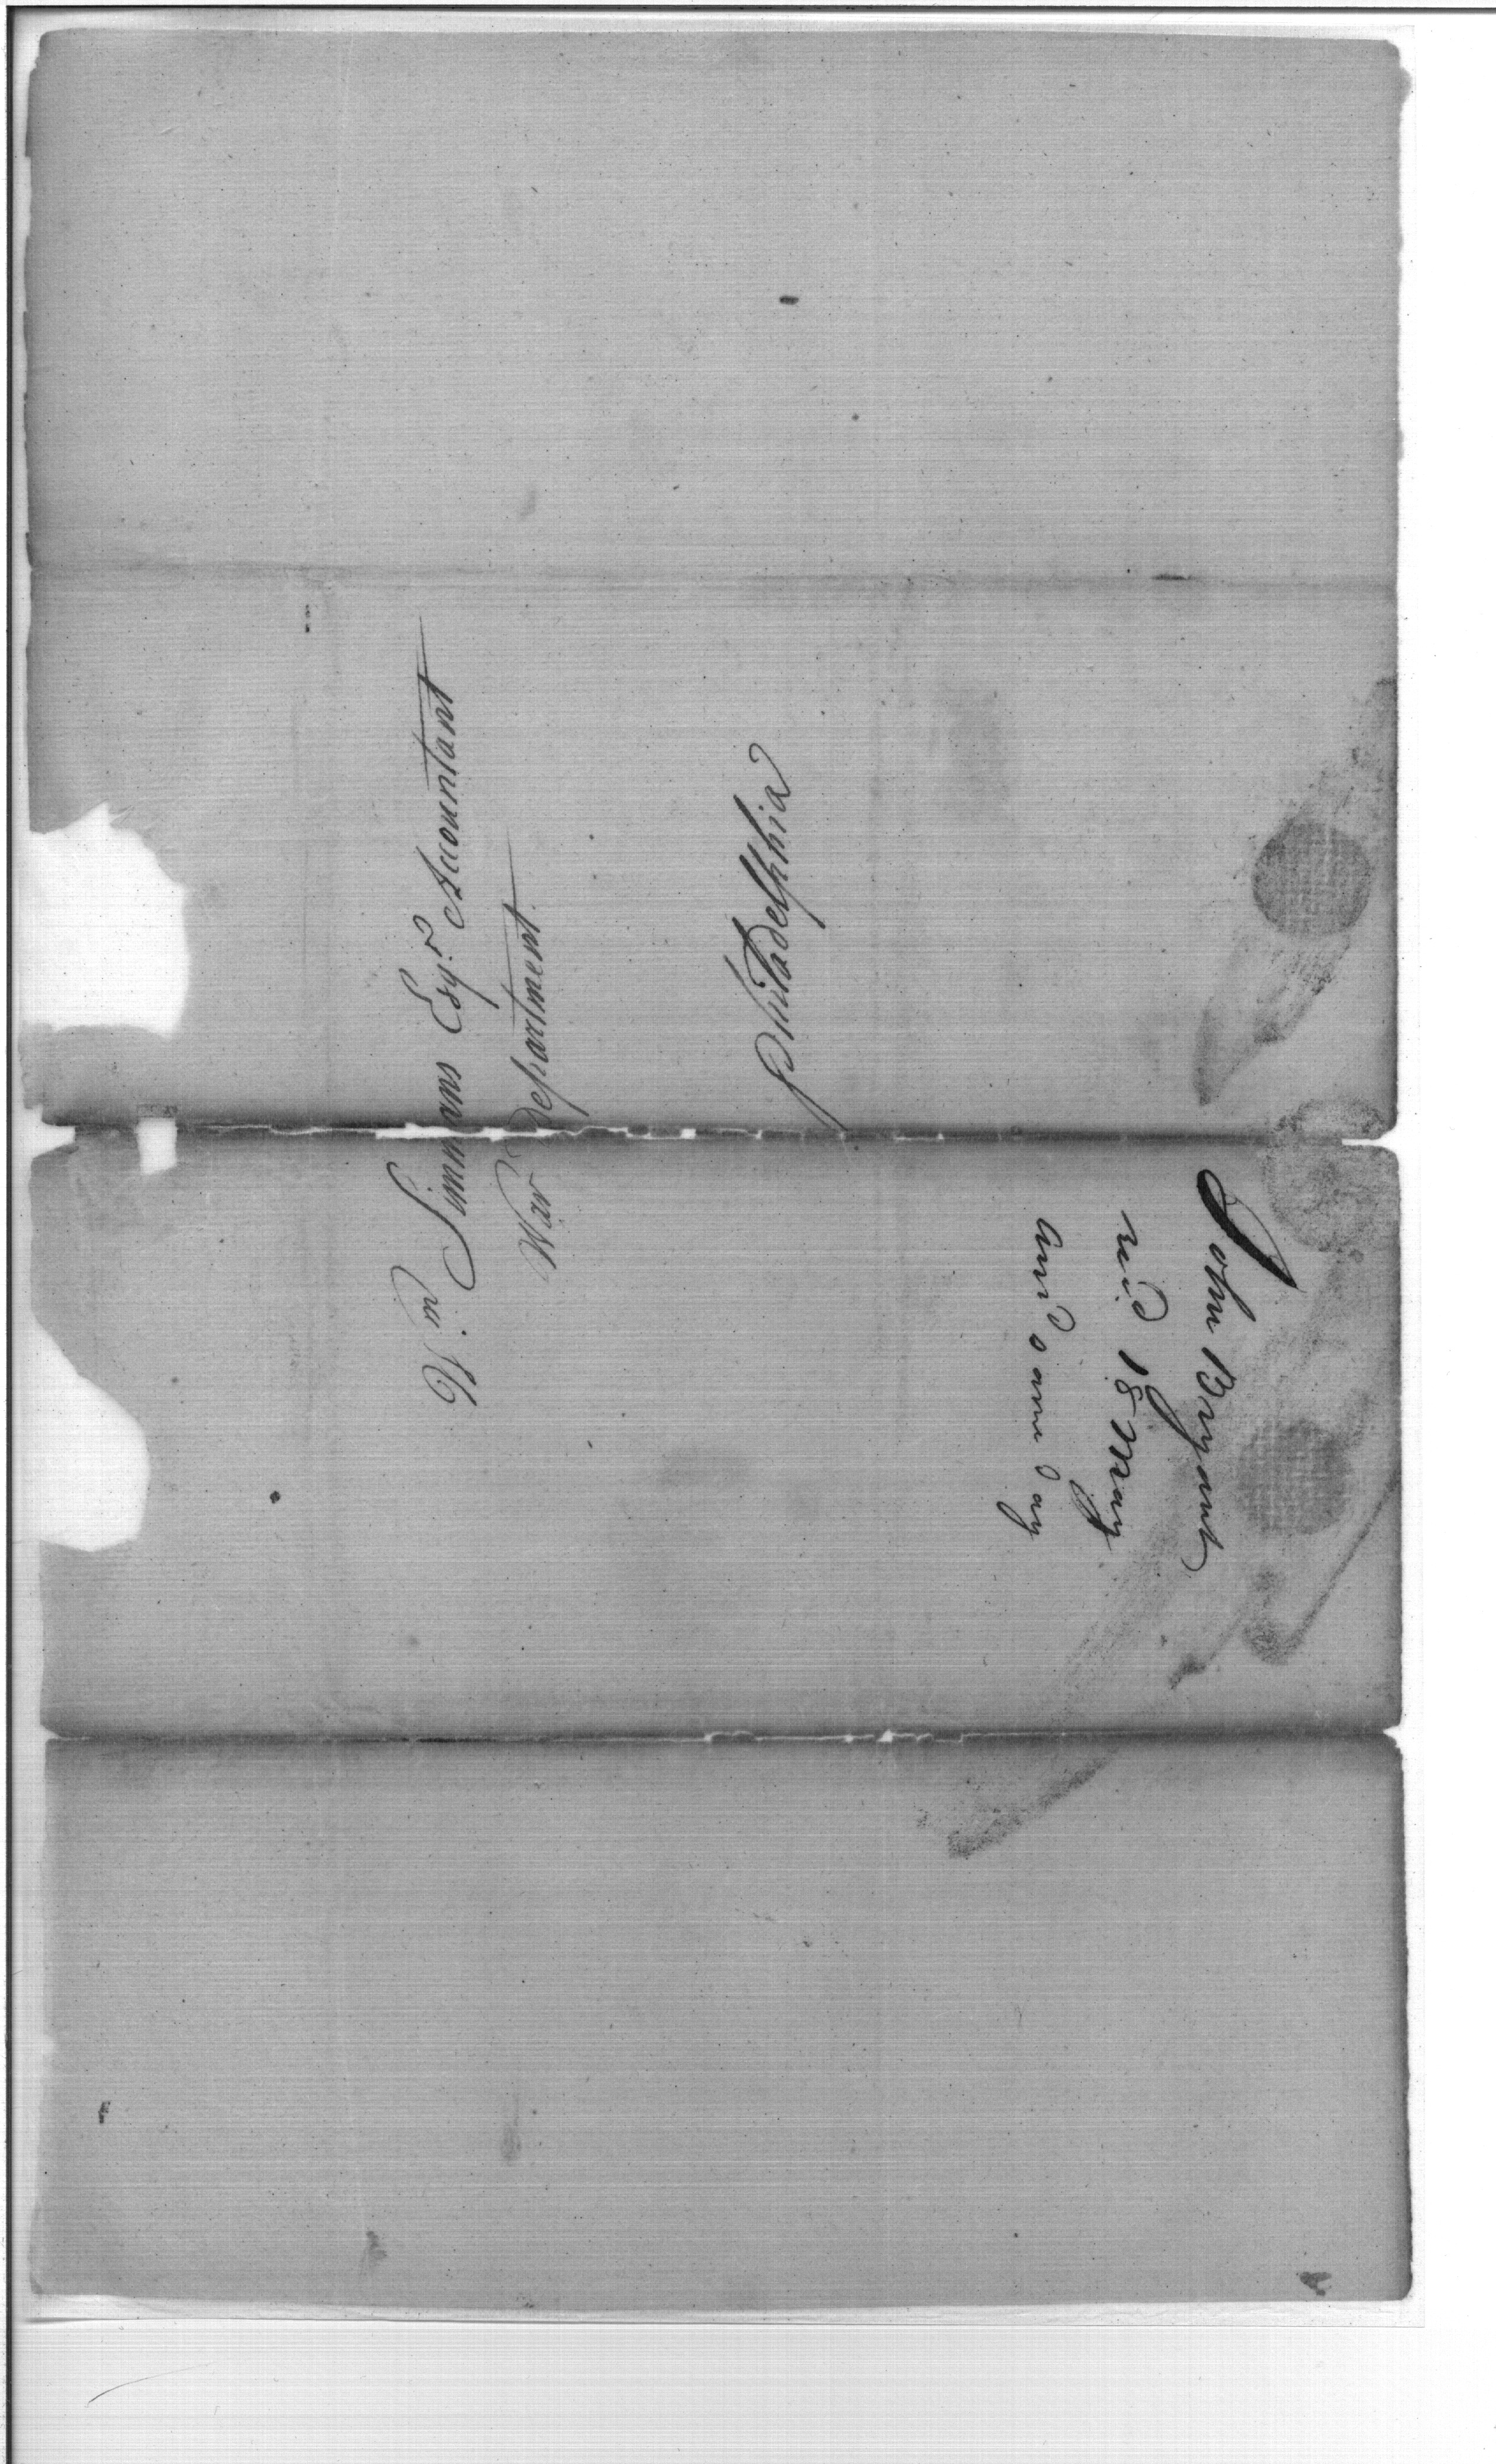 W.m Simmons Esq.r Accountant
War department.
Philadelphia
John Bryant
recd 18 May
Ansd same day